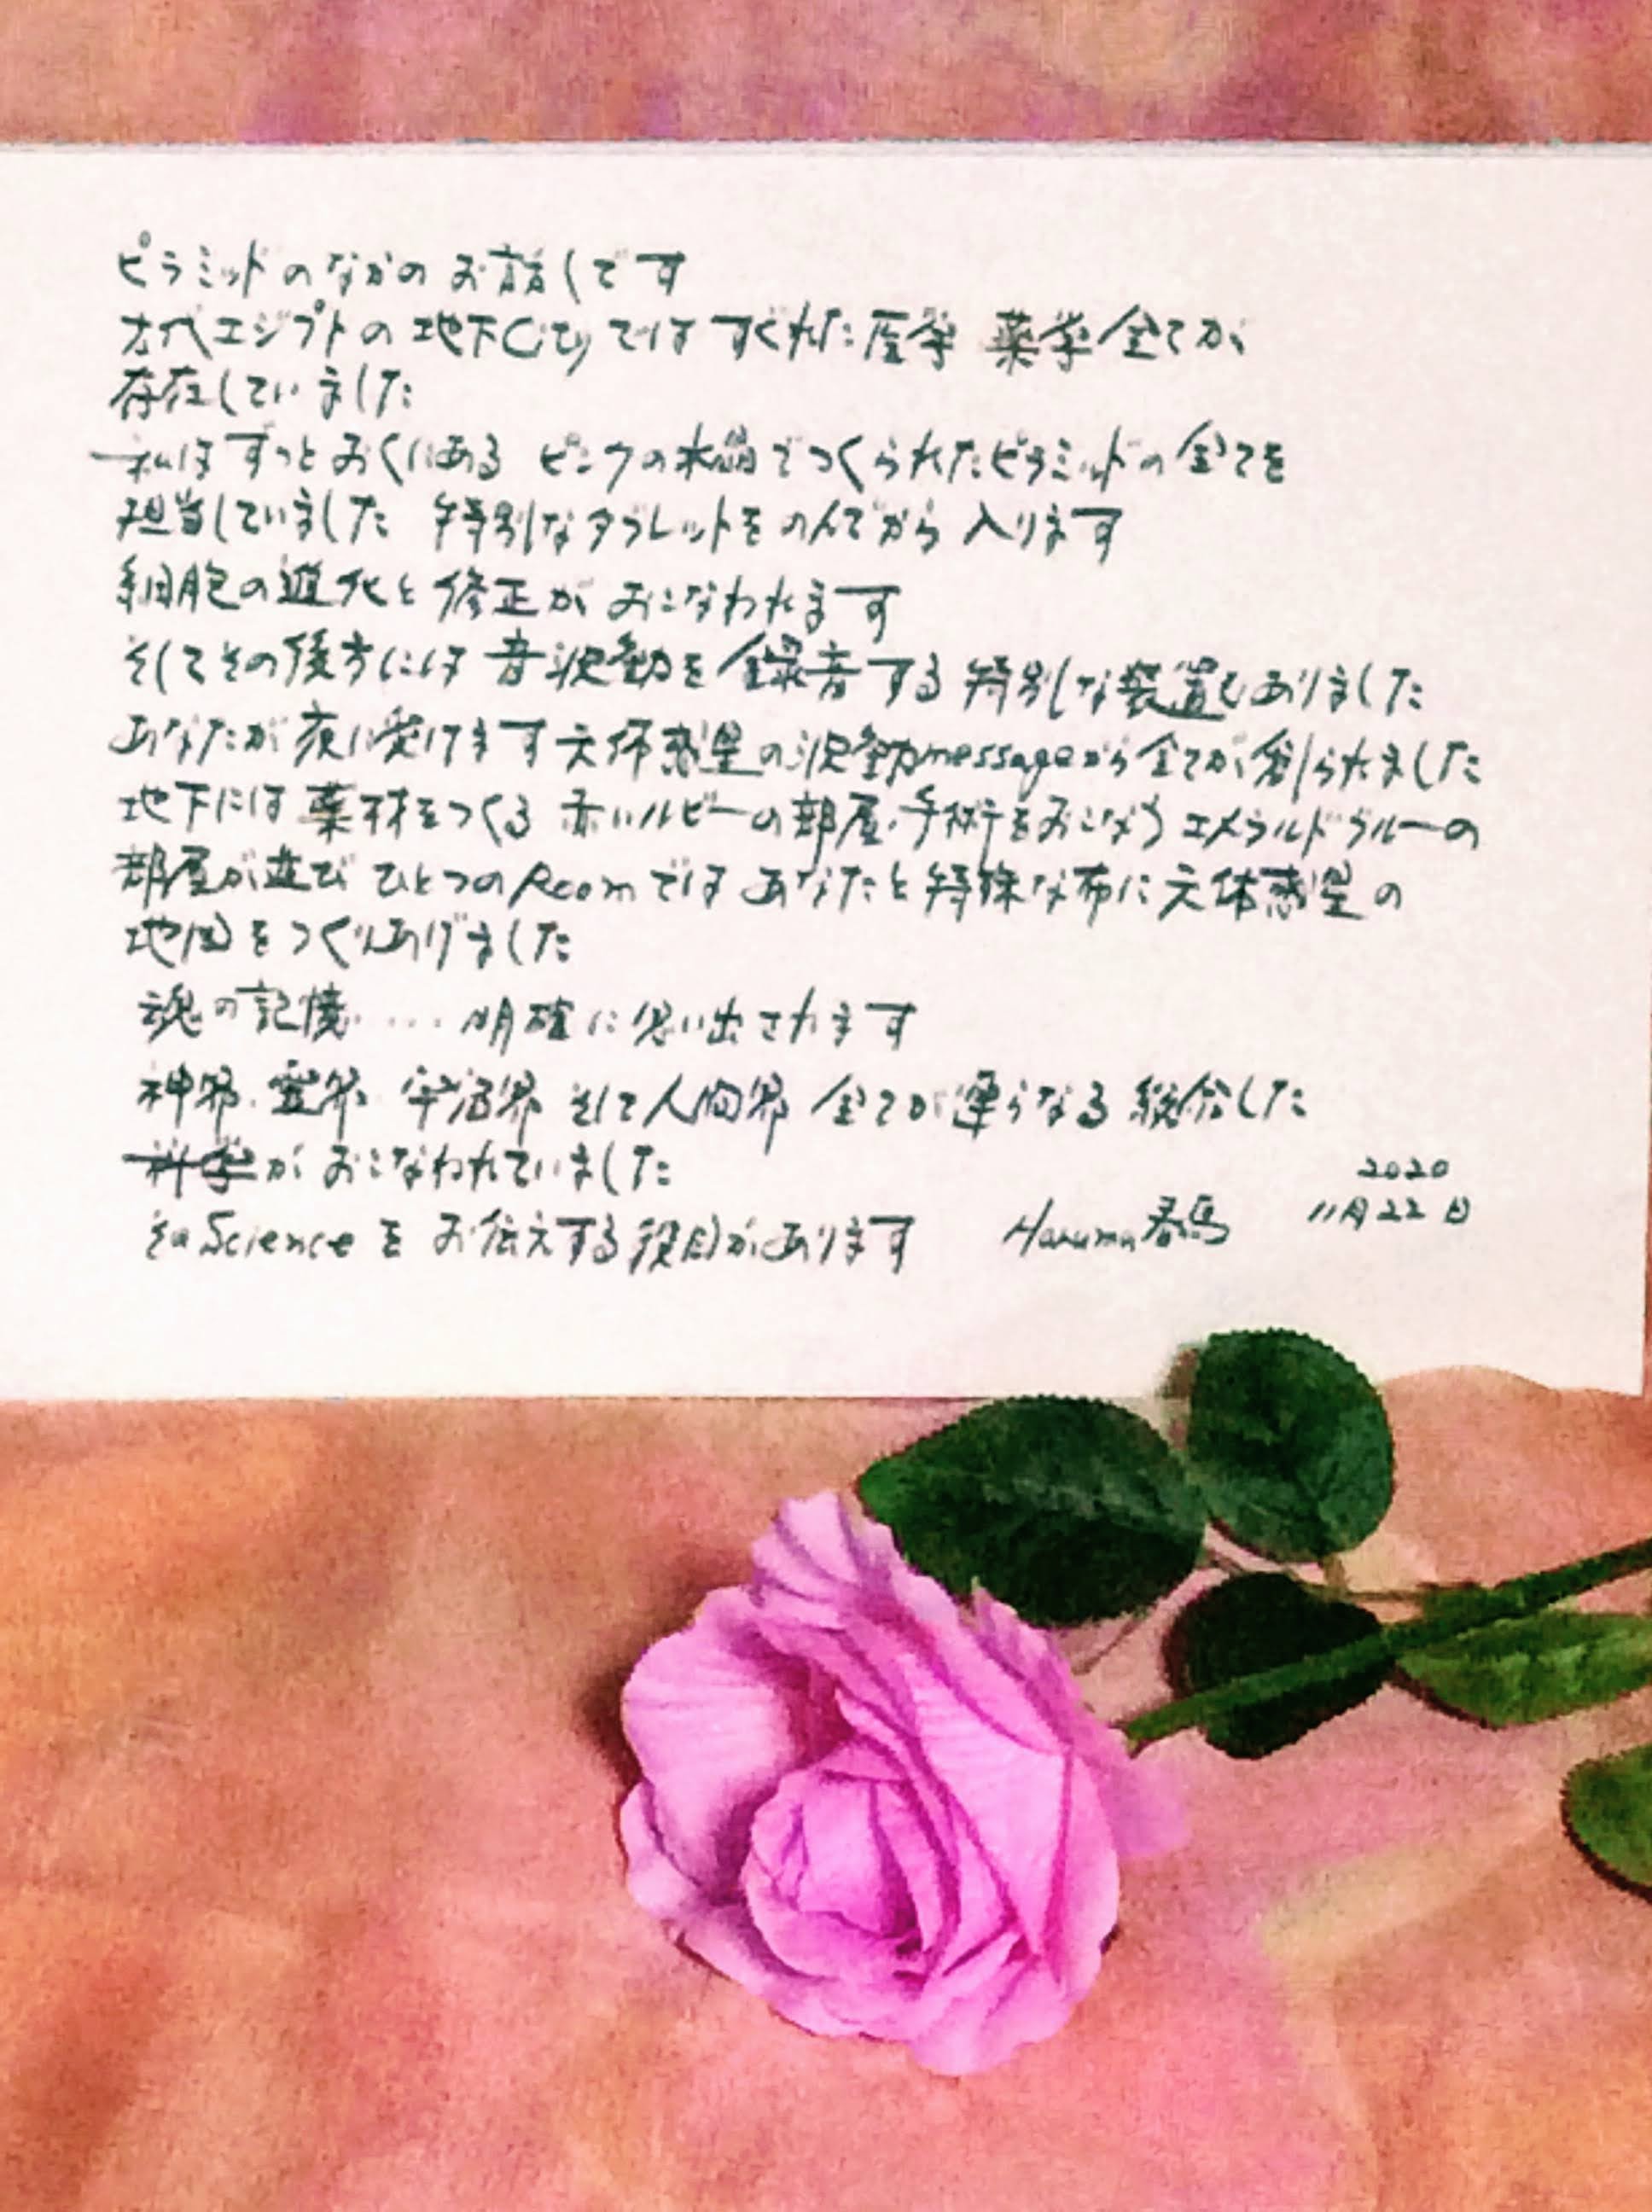 ピラミッドのなかのお話しです
古代エジプトの地下Cityではすぐれた医学 薬学全てが
存在していました
私はずっとおくにある ピンクの水晶でつくられたピラミッドの全てを
担当していました 特別なタブレットをのんでから入ります
細胞の進化と修正がおこなわれます
そしてその後方には音波動を録音する特別な装置もありました
あなたが夜に受けます天体惑星の波動messageから全てが創られました
地下には薬材をつくる 赤いルビーの部屋・手術をおこなうエメラルドブルーの
部屋が並び ひとつのRoomではあなたと特殊な布に天体惑星の
地図をつくりあげました
魂の記憶・・・・・明確に思い出されます
神界・霊界 宇宙界 そして人間界 全てが連らなる統合した
科学がおこなわれていました
そのScienceをお伝えする役目があります
Haruma春馬
2020
11月22日